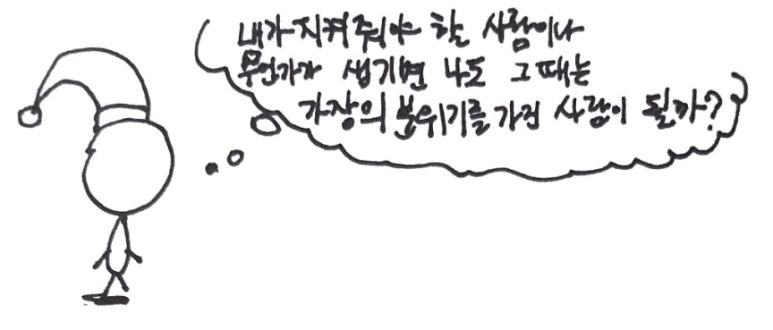 내가 지켜줘야 할 사람이나
무언가가 생기면 나도 그때는
가장의 분위기를 가진 사람이 될까?